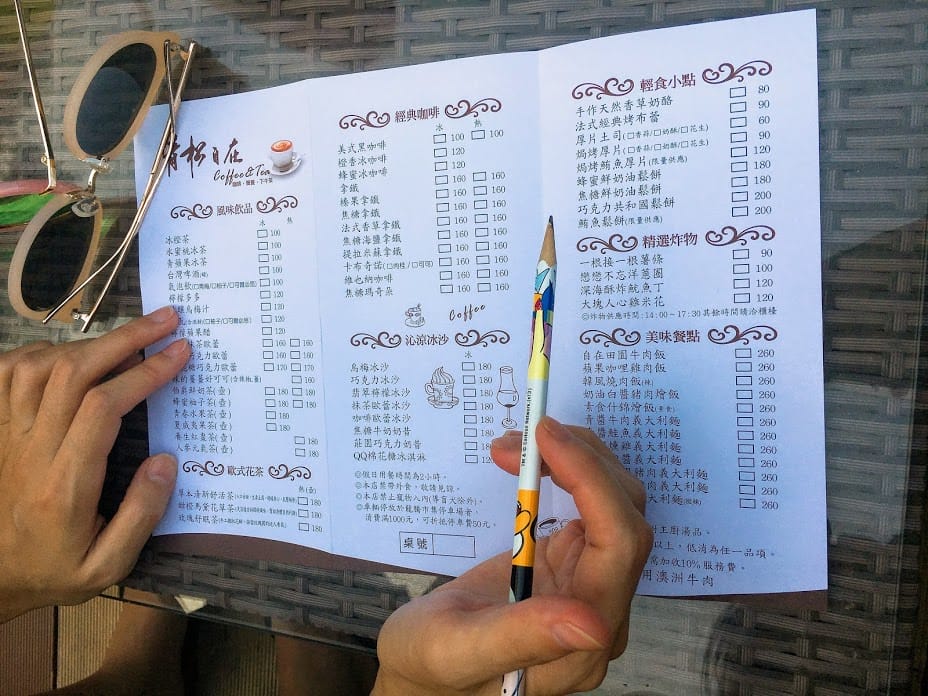 青松自在
Coffee&Tea
咖啡、簡餐、下午茶
風味飲品
冰 熱
冰橙茶 100
水蜜桃冰茶 100
青蘋果冰茶 100
台灣啤酒(罐) 100
氣泡飲(□青梅/□柚子/□可爾必思) 120
檸檬多多 120
烏梅汁 120
120
蘋果醋 120
抹茶歐蕾 160 160
巧克力歐蕾 160 160
巧克力歐蕾 170 170
薑薑好可可(含辣椒,薑) 160
伯爵鮮奶茶(壺) 180 180
蜂蜜柚子茶(壺) 180 180
青春水果茶(壺) 180
夏威夷果茶(壺) 180
養生紅棗茶(壺) 180
人蔘元氣茶(壺) 180
歐式花茶
熱(壺)
草本清新舒活茶 180
甜橙馬黛花草茶 180
玫瑰舒眠茶 180
經典咖啡
冰 熱
美式黑咖啡 100 100
橙香冰咖啡 120
蜂蜜冰咖啡 120
拿鐵 160 160
榛果拿鐵 160 160
焦糖拿鐵 160 160
法式香草拿鐵 160 160
焦糖海鹽拿鐵 160 160
提拉米蘇拿鐵 160 160
卡布奇諾(□肉桂/□可可) 160 160
維也納咖啡 160 160
焦糖瑪奇朵 160 160
Coffee
沁涼冰沙
冰
烏梅冰沙 180
巧克力冰沙 180
翡翠檸檬冰沙 180
抹茶歐蕾冰沙 180
咖啡歐蕾冰沙 180
焦糖牛奶奶昔 180
莊園巧克力奶昔 180
QQ棉花糖冰淇淋 120
◎假日用餐時間為2小時。
◎本店禁帶外食,敬請見諒。
◎本店禁止寵物入內(導盲犬除外)。
◎車輛停放於龍騰市集停車場者,
消費滿1000元,可折抵停車費50元。
桌號
輕食小點
手作天然香草奶酪 80
法式經典烤布蕾 90
厚片土司(□香蒜/□奶酥/□花生) 60
焗烤厚片(□香蒜/□奶酥/□花生) 90
焗烤鮪魚厚片(限量供應) 120
蜂蜜鮮奶油鬆餅 180
焦糖鮮奶油鬆餅 180
巧克力共和國鬆餅 200
鮪魚鬆餅(限量供應) 200
精選炸物
一根接一根薯條 90
戀戀不忘洋蔥圈 100
深海酥炸魷魚丁 120
大塊人心雞米花 110
◎炸物供應時間:14:00~17:30其餘時間請洽櫃檯
美味餐點
自在田園牛肉飯 260
蘋果咖哩雞肉飯 260
韓風燒肉飯(辣) 260
奶油白醬豬肉燴飯 260
素食什錦燴飯(素食) 260
青醬牛肉義大利麵 260
醬鮭魚義大利麵 260
燻雞義大利麵 260
醬義大利麵 260
豬肉義大利麵 260
肉義大利麵 260
義大利麵(微辣) 260
附主廚湯品。
以上,低消為任一品項。
需加收10%服務費。
用澳洲牛肉